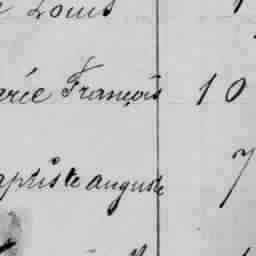 Louis
arée François 10
aptiste auguste 7